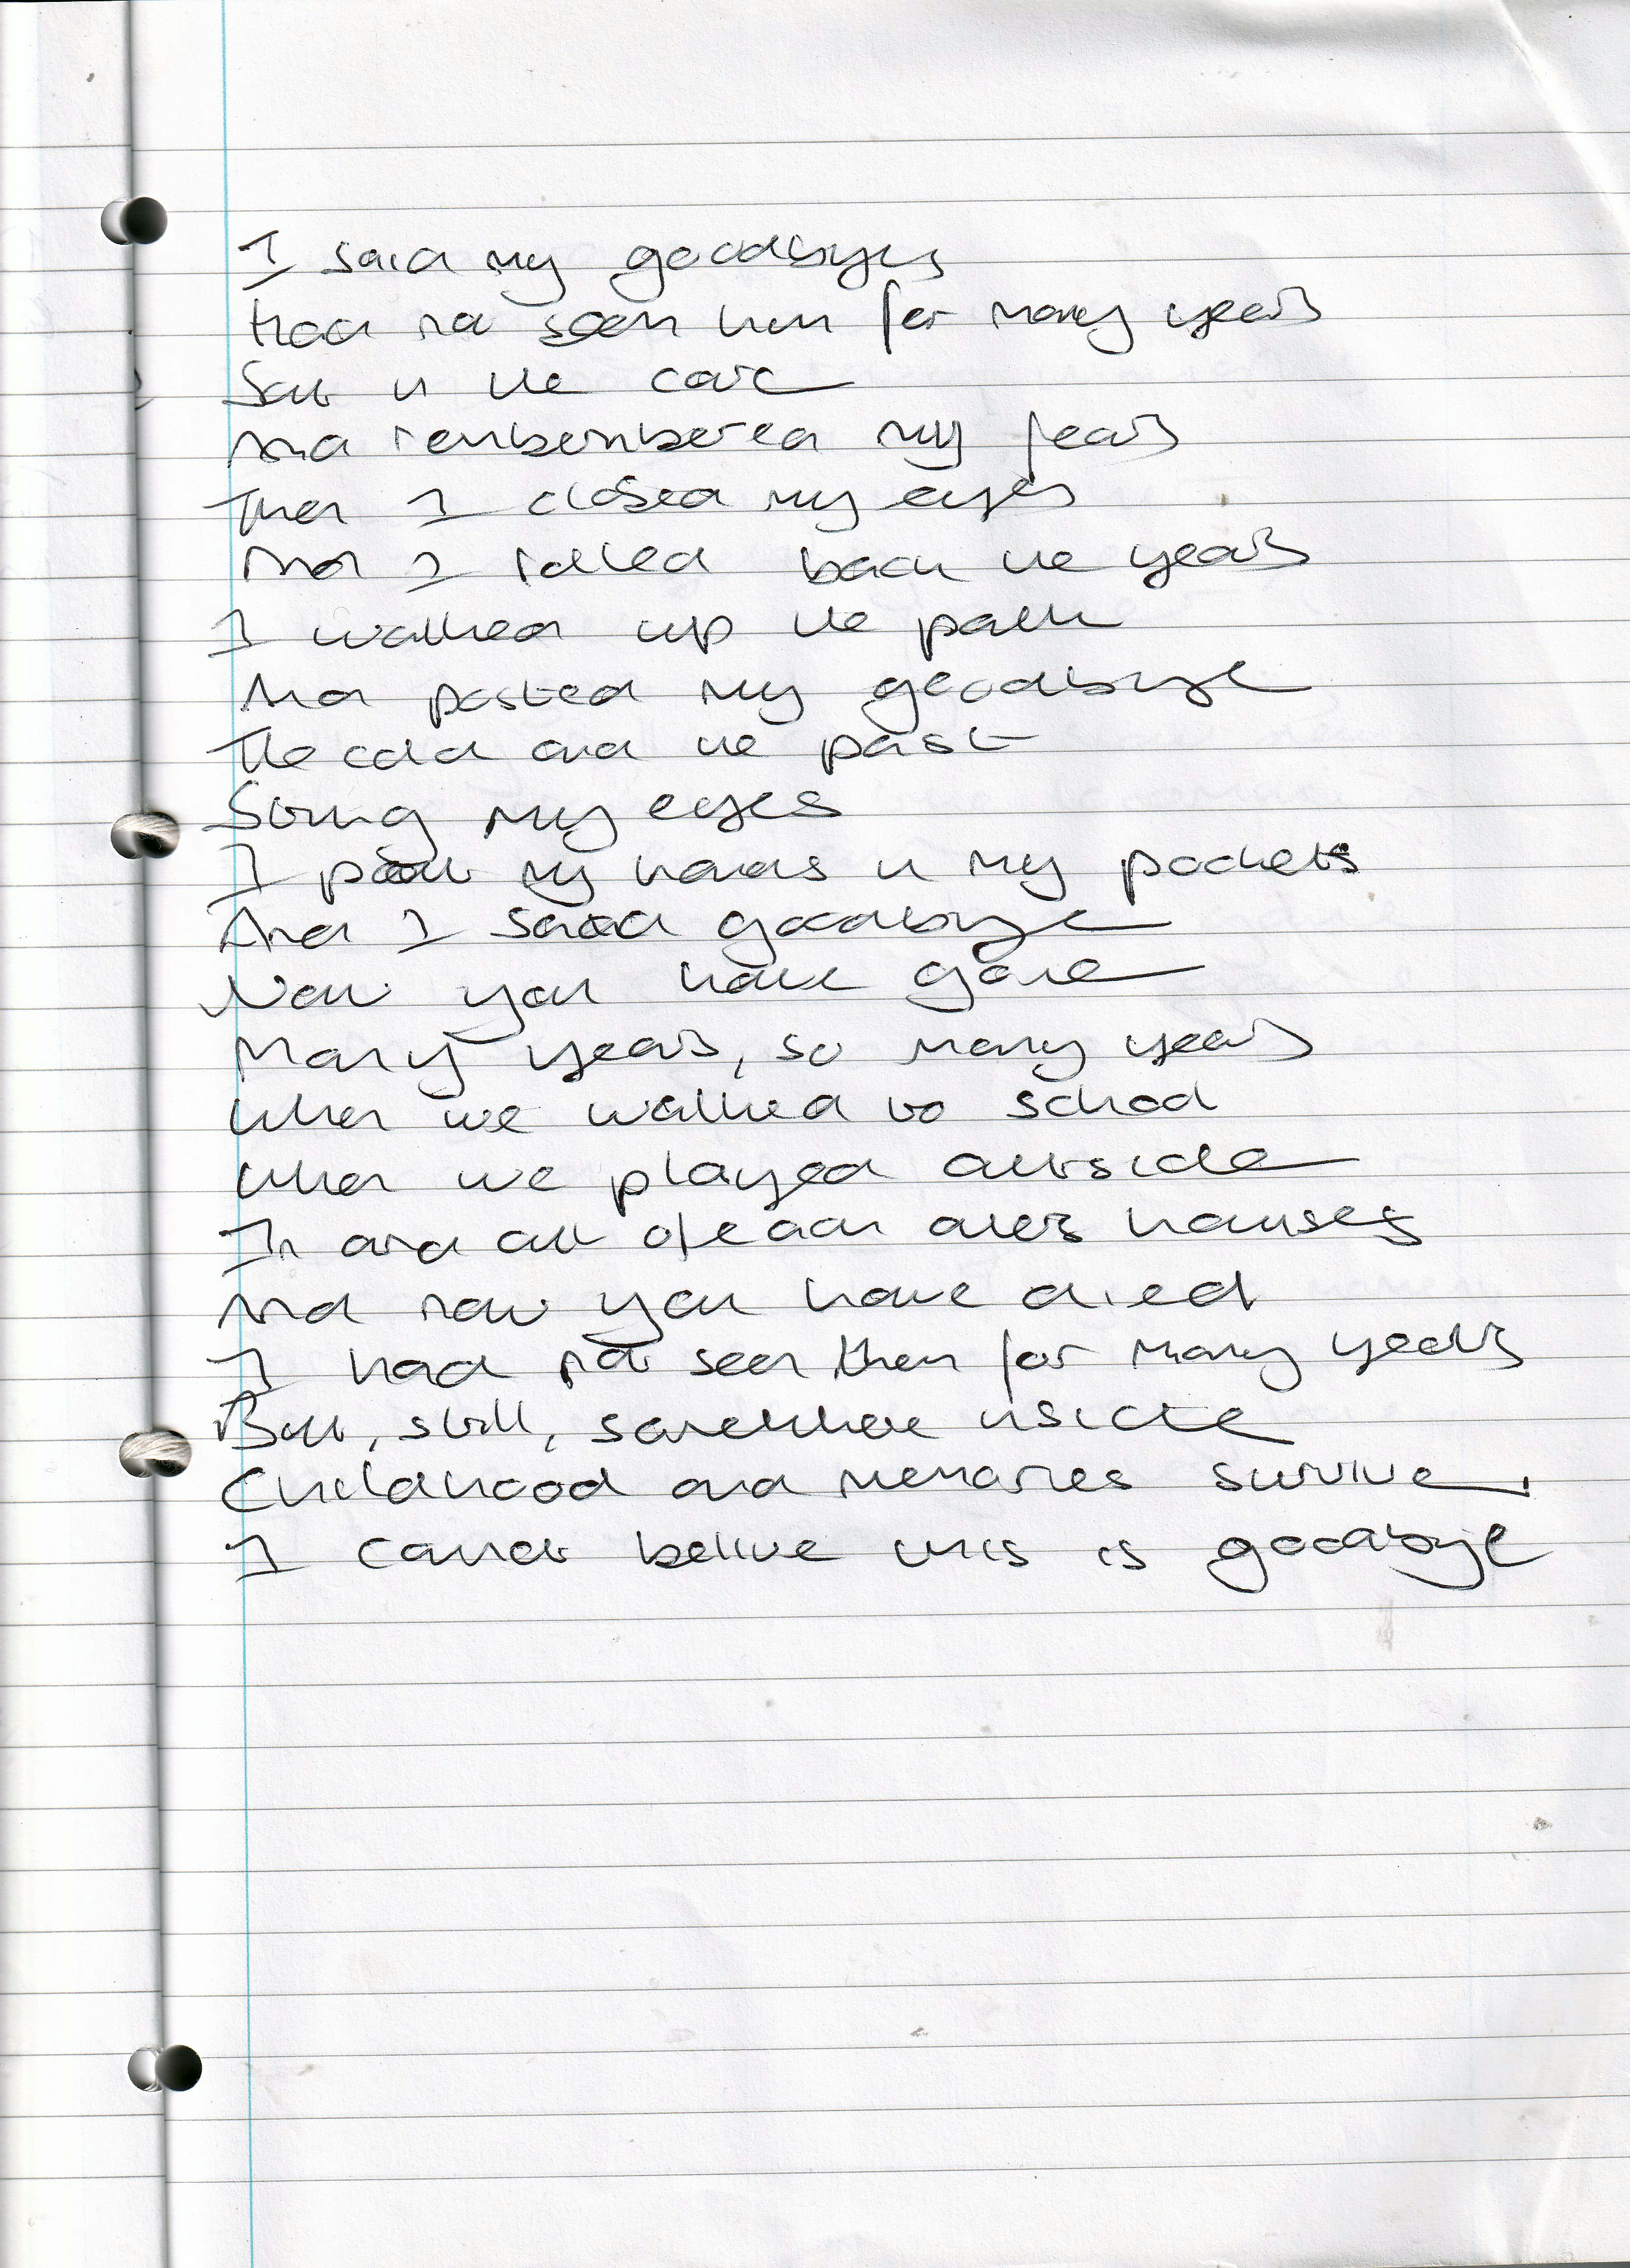 I said my goodbyes
Had not seen him for many years
Sat in the care
And rembembered my fears
Then I closed my eyes
And I rolled back the years
I walked up the path
And posted my goodbye
The cold and the past
Stung my eyes
I put my hands in my pockets
And I said goodbye
Now you have gone
Many years, so many years
When we walked to school
When we played outside
In and out of each others houses
And now you have died
I had not seen them for many years
But, still, somewhere inside
Childhood and memories survive.
I cannot belive this is goodbye